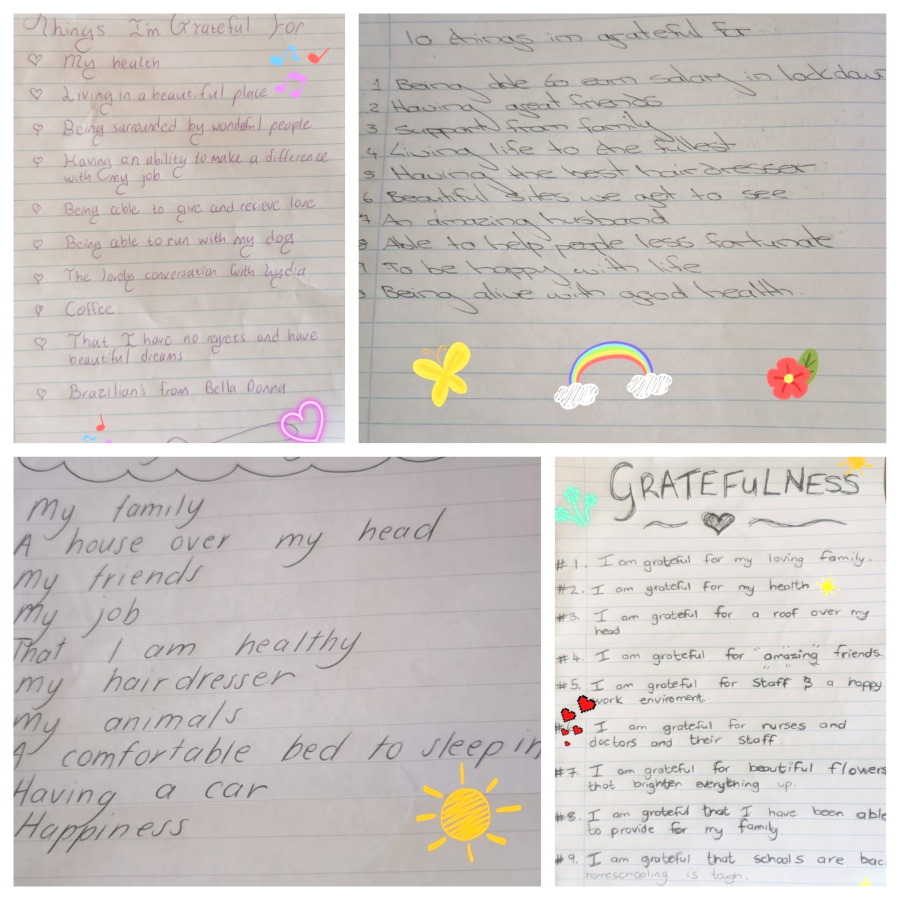 Things I'm Grateful For
My health
Living in a beautiful place
Being surrounded by wonderful people
Having an ability to make a difference
with my job.
Being able to give and recieve love
Being able to run with my dog
The lovely conversation with Lydia
Coffee
That I have no regrets and have
beautiful dreams
Brazilian's from Bella Donna
10 things im grateful for...
1 Being able to earn salary in lockdown
2 Having great friends
3 Support from family
4 Living life to the fullest
5 Having the best hairdresser
6 Beautiful sites we get to see
7 An amazing husband
8 Able to help people less fortunate
9 To be happy with life
Being alive with good health.
My family
A house over my head
my friends
my job
That I am healthy
my hairdresser
my animals
A comfortable bed to sleep in
Having a car
Happiness
GRATEFULNESS
#1. I am grateful for my loving family.
#2. I am grateful for my health
#3. I am grateful for a roof over my
head
#4. I am grateful for "amazing" friends.
#5. I am grateful for staff & a happy
work enviroment.
I am grateful for nurses and
doctors and their staff
#7. I am grateful for beautiful flowers
that brighten everything up.
#8. I am grateful that I have been able
to provide for my family
#9. I am grateful that schools are bac
homeschooling is tough.